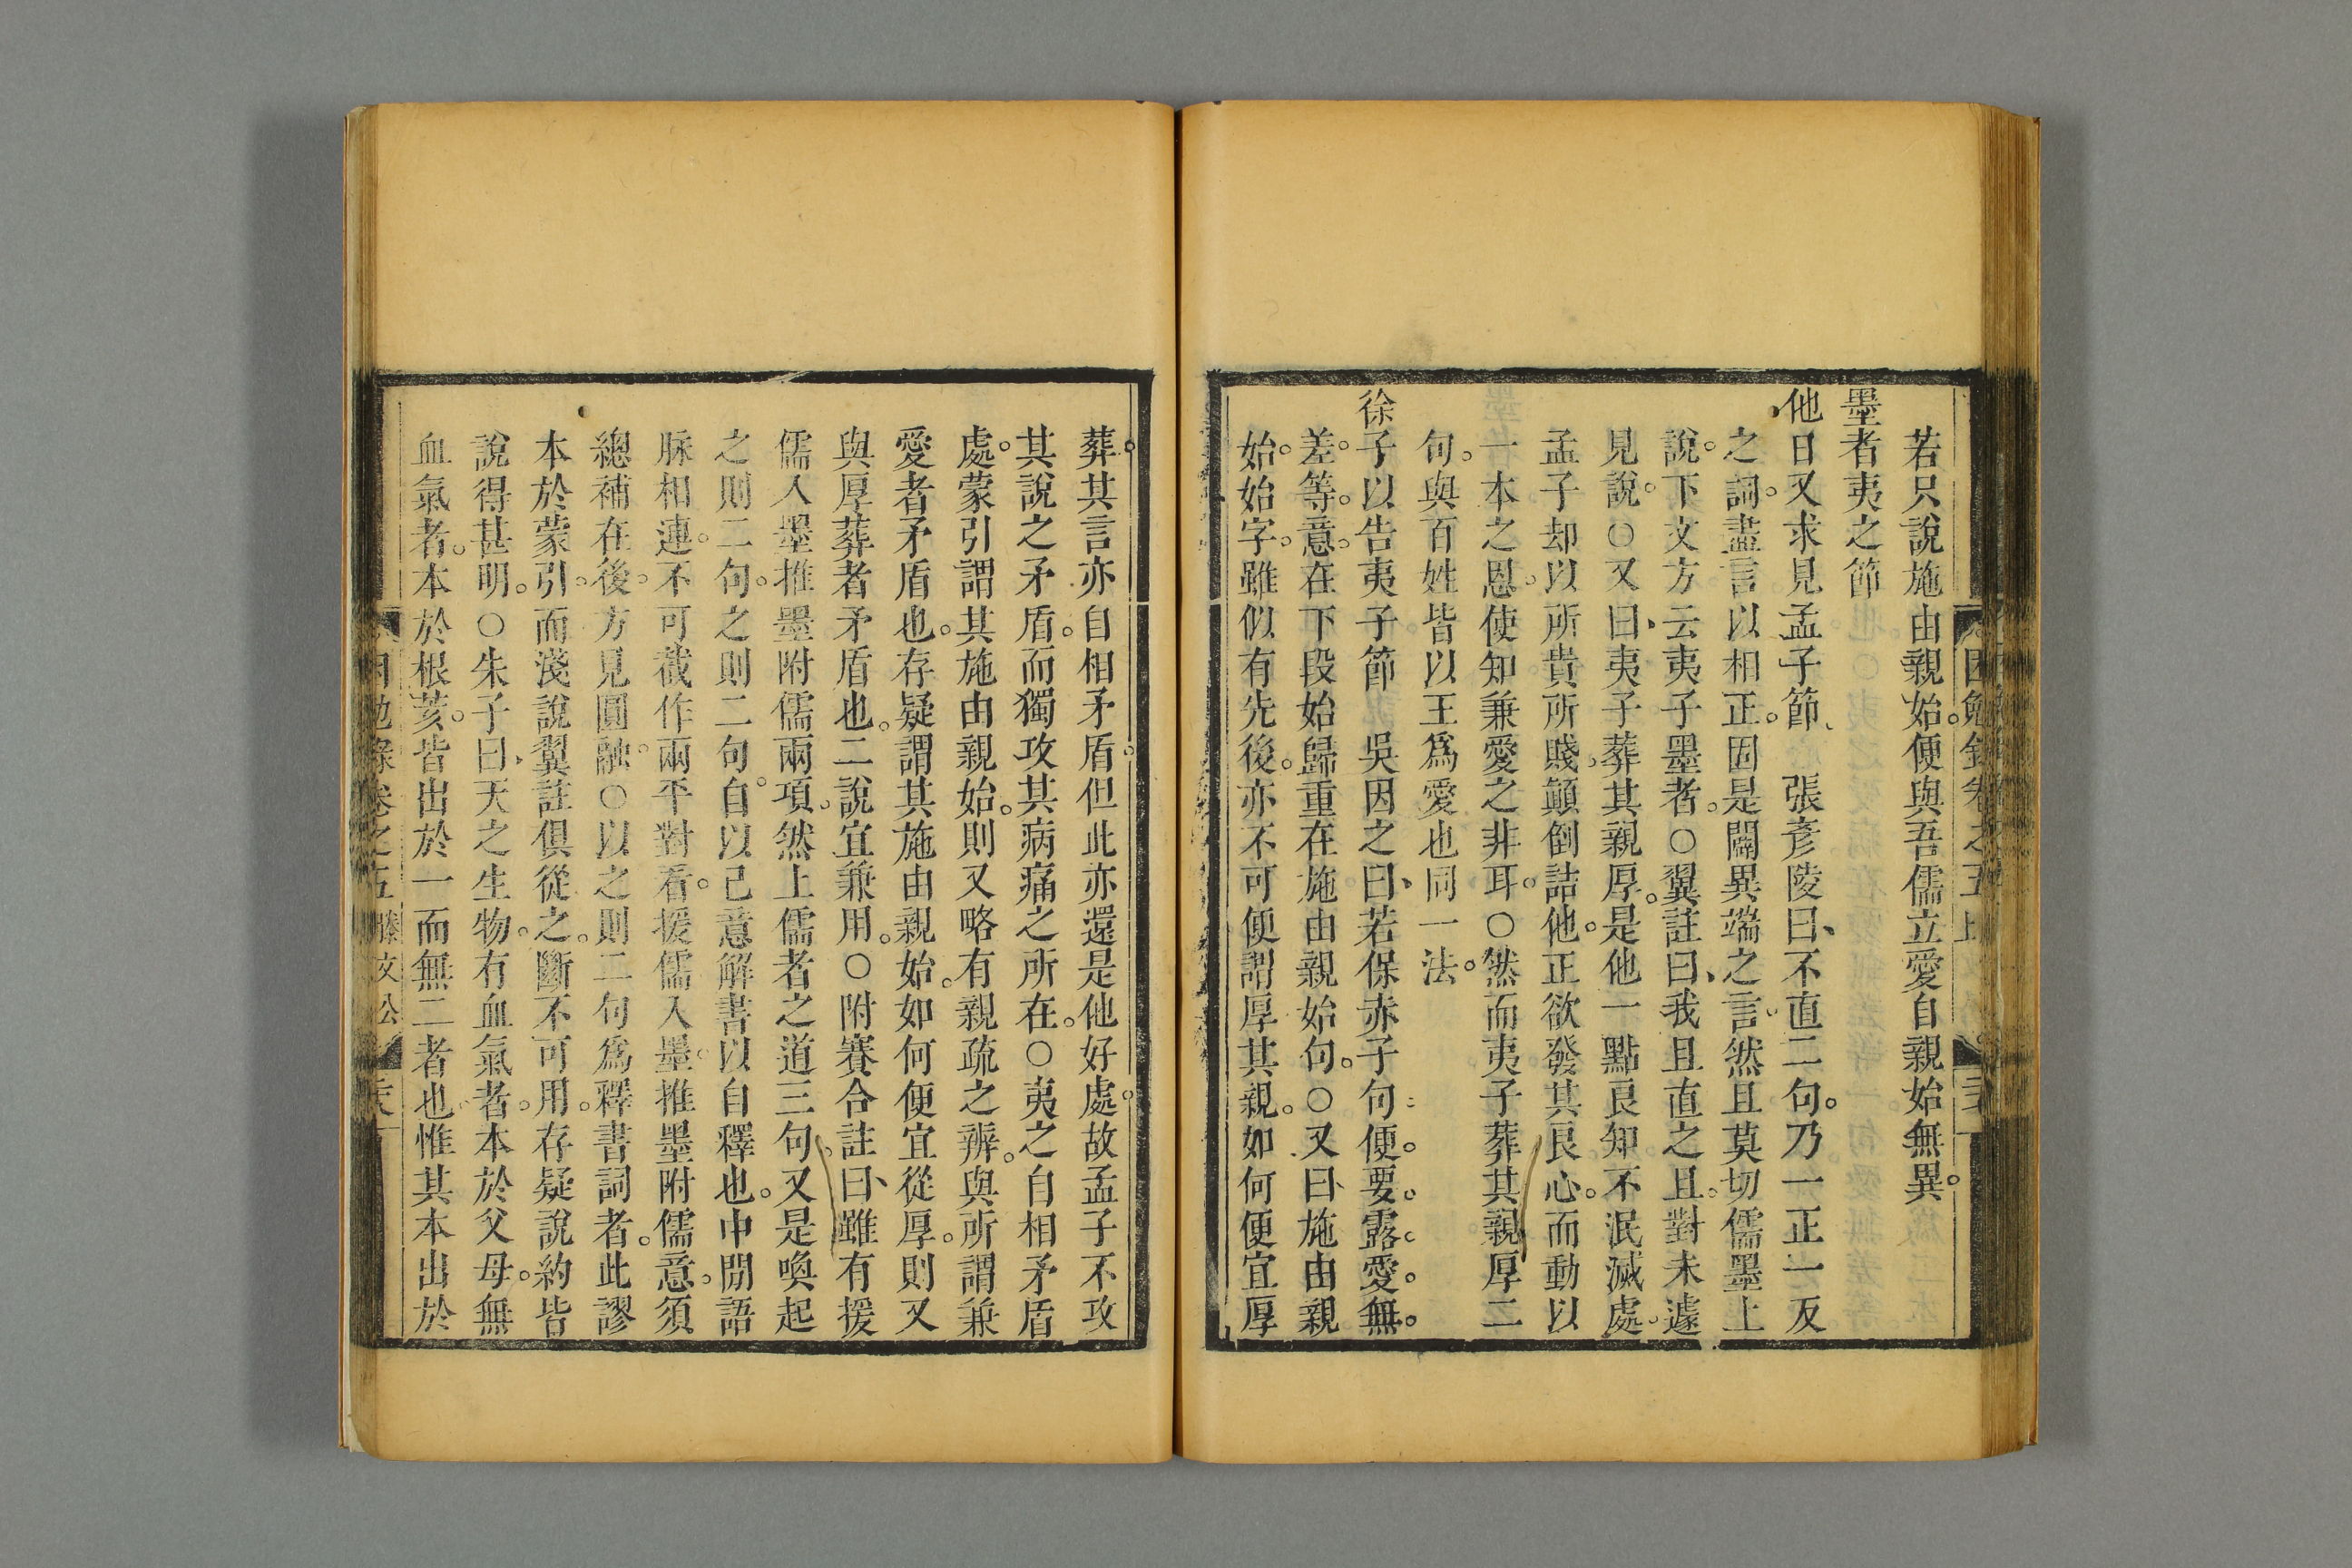 若只說施由親始便與吾儒立愛自親始無異
墨者夷之節
他日又求見孟子節 張彥陵曰不直二句乃一正一反
之詞盡言以相正固是闢異端之言然且莫切儒墨上
說下文方云夷子墨者○翼註曰我且直之且對未遽
見說○又曰夷子葬其親厚是他一點良知不泯滅處
孟子却以所貴所賤顛倒詰他正欲發其良心而動以
一本之恩使知兼愛之非耳○然而夷子葬其親厚二
句與百姓皆以王爲愛也同一法
徐子以告夷子節 吳因之曰若保赤子句便要露愛無
差等意在下段始歸重在施由親始句○又曰施由親
始始字雖似有先後亦不可便謂厚其親如何便宜厚
葬其言亦自相矛盾但此亦還是他好處故孟子不攻
其說之矛盾而獨攻其病痛之所在○夷之自相矛盾
處蒙引謂其施由親始則又略有親疏之辨與所謂兼
愛者矛盾也存疑謂其施由親始如何便宜從厚則又
與厚葬者矛盾也二說宜兼用○附賽合註曰雖有援
儒入墨推墨附儒兩項然上儒者之道三句又是喚起
之則二句之則二句自以己意解書以自釋也中間語
脉相連不可截作兩平對看援儒入墨推墨附儒意須
總補在後方見圓融○以之則二句爲釋書詞者此謬
本於蒙引而淺說翼註俱從之斷不可用存疑說約皆
說得甚明○朱子曰天之生物有血氣者本於父母無
血氣者本於根荄皆出於一而無二者也惟其本出於